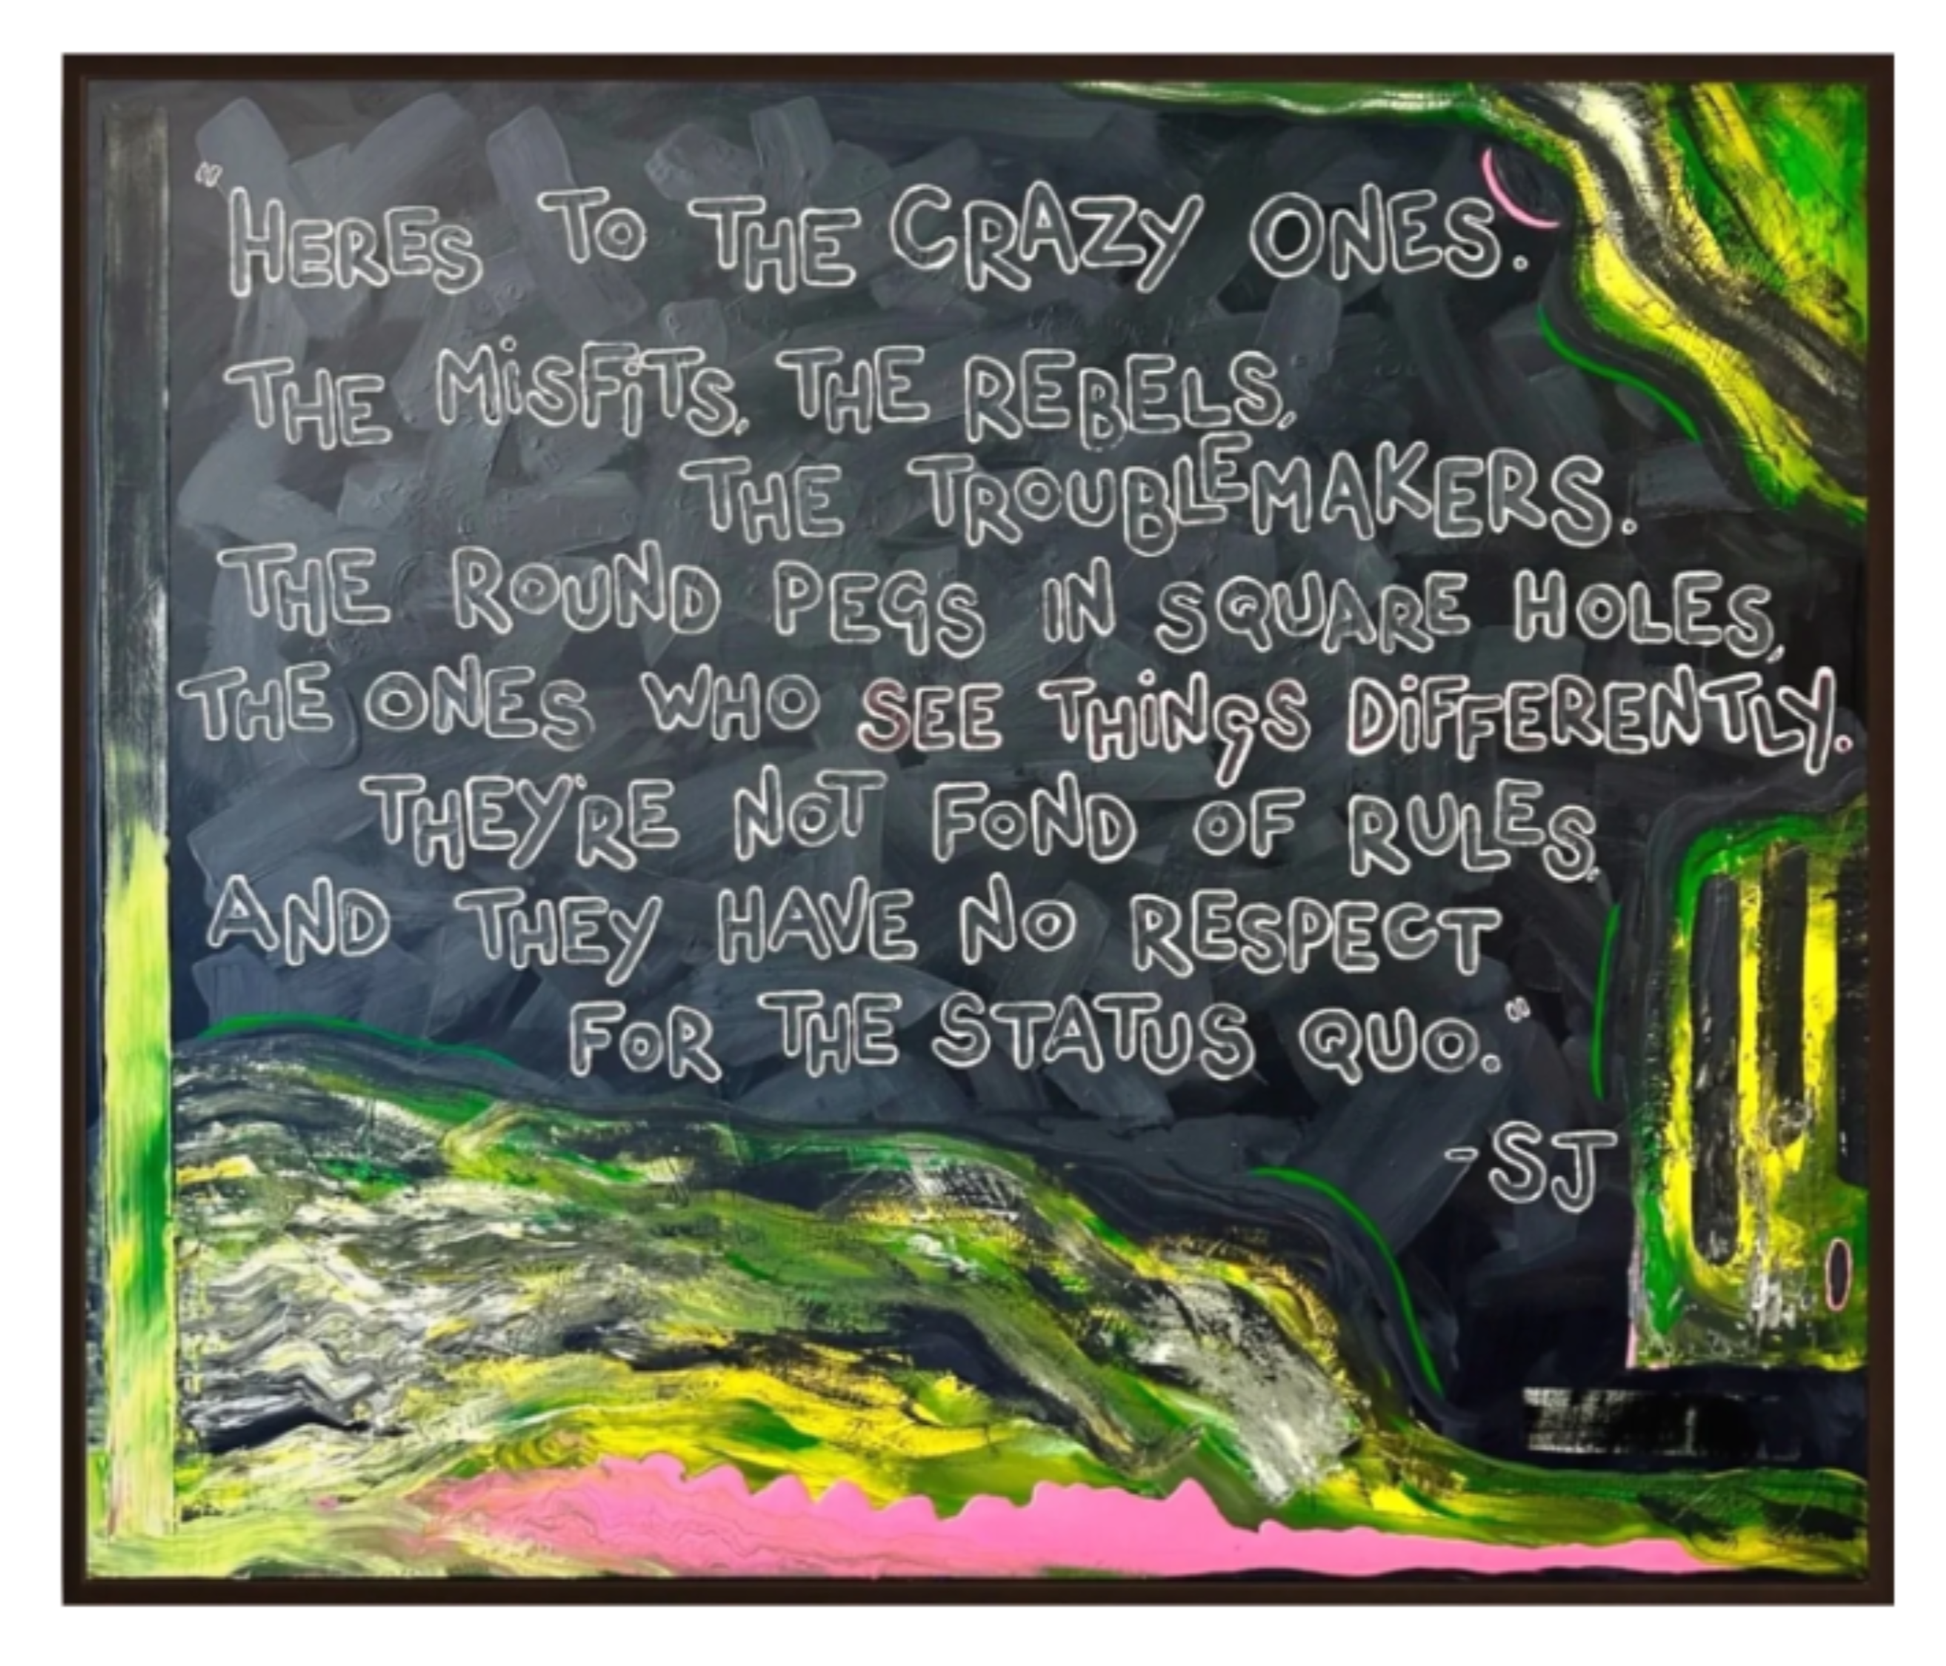 "HERES TO THE CRAZY ONES.
THE MiSFiTS, THE REBELS,
THE TROUBLEMAKERS.
THE ROUND PEGS IN SQUARE HOLES,
THE ONES WHO SEE THiNGS DiFFERENTLY.
THEY'RE NOT FOND OF RULES,
AND THEY HAVE NO RESPECT
FOR THE STATUS QUO."
-SJ